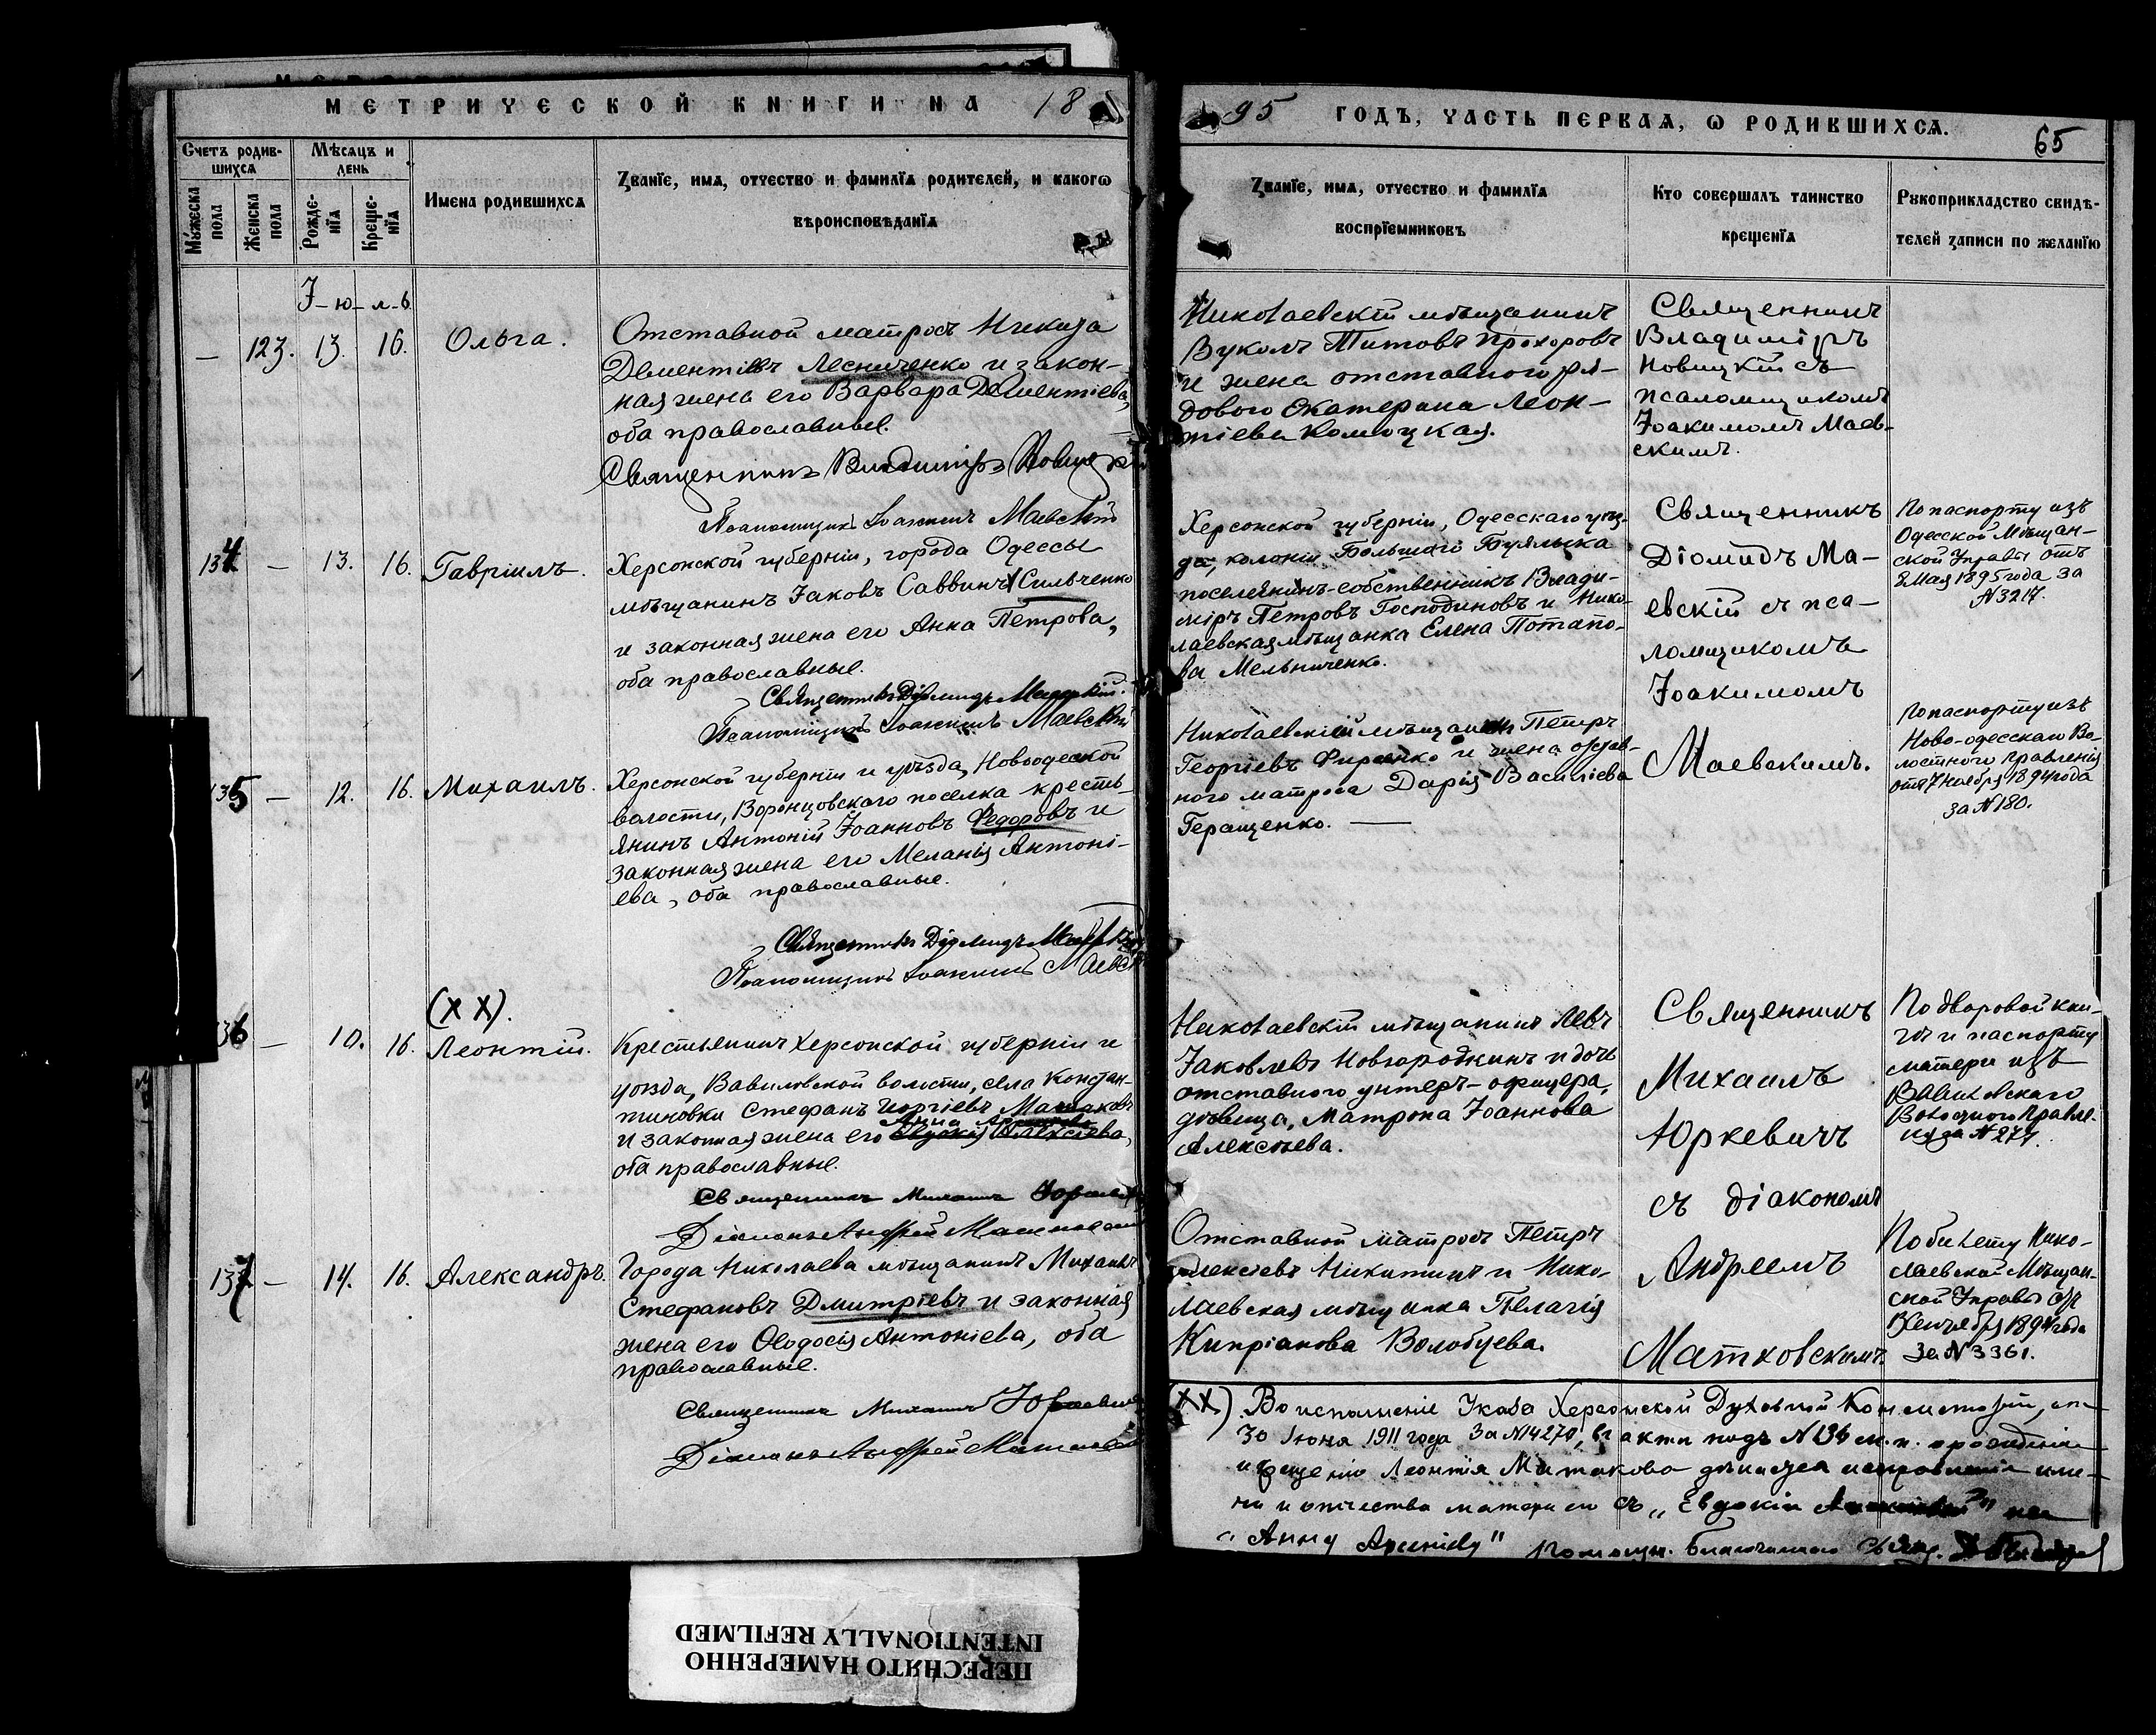 МЕТРИЧЕСКОЙ КНИГИ НА 18
95 ГОДЪ, ЧАСТЬ ПЕРВАЯ, Ѡ РОДИВШИХСЯ.
65
Счетъ родив-
шихся
Мѣсяцъ и
день
Мужеска
пола
Женска
пола
Рожде-
нїя
Креще-
нїя
Имена родившихся
Званїе, имя, отчество и фамилїя родителей, и какогѡ
вѣроисповѣданїя
Званїе, имя, отчество и фамилїя
воспрїемниковъ
Кто совершалъ таинство
крещенїя
Рукоприкладство свидѣ-
телей записи по желанїю
І-ю-л-ь
— 123. 13. 16. Ольга.
Отставной матросъ Никита
Дементіевъ Лесниченко и закон-
ная жена его Варвара Дементіева,
оба православные.
Священникъ Владиміръ Новицкій
Псаломщикъ Іоакимъ Маевскій
Николаевскій мѣщанинъ
Вуколъ Титовъ Прохоровъ
и жена отставного ря-
дового Екатерина Леон-
тіева Комоцкая.
Священникъ
Владиміръ
Новицкій съ
псаломщикомъ
Іоакимомъ Маев-
скимъ.
134 — 13. 16. Гавріилъ.
Херсонской губерніи, города Одессы
мѣщанинъ Іаковъ Саввинъ Сильченко
и законная жена его Анна Петрова,
оба православные.
Священникъ Діомидъ Маевскій.
Псаломщикъ Іоакимъ Маевскій
Херсонской губерніи, Одесскаго уѣз-
да, колоніи Большаго Буялыка
поселянинъ-собственникъ Влади-
міръ Петровъ Господиновъ и Нико-
лаевская мѣщанка Елена Потапо-
ва Мельниченко.
Священникъ
Діомидъ Ма-
евскій съ пса-
ломщикомъ
Іоакимомъ
Маевскимъ.
По паспорту изъ
Одесской Мѣщан-
ской Управы отъ
8 Мая 1895 года за
№ 3217.
135 — 12. 16. Михаилъ.
Херсонской губерніи и уѣзда, Новоодесской
волости, Воронцовскаго поселка кресть-
янинъ Антоній Іоанновъ Федоровъ и
законная жена его Меланія Антоні-
ева, оба православные.
Священникъ Діомидъ Маевскій
Псаломщикъ Іоакимъ Маевскій
Николаевскій мѣщанинъ Петръ
Георгіевъ Фирсенко и жена отстав-
ного матроса Дарія Василіева
Геращенко. —
По паспорту изъ
Ново-одесскаго Во-
лостного Правленія
отъ 7 Ноября 1894 года
за № 180.
(X X).
136 — 10. 16. Леонтій.
Крестьянинъ Херсонской губерніи и
уѣзда, Вавиловской волости, села Констан-
тиновки Стефанъ Георгіевъ Матаковъ
Анна Арсеніева
и законная жена его Евдокія Алексіева,
оба православные.
Священникъ Михаилъ Юркевичъ
Діаконъ Андрей Матковскій
Николаевскій мѣщанинъ Левъ
Іаковлевъ Новгородкинъ и дочь
отставного унтеръ-офицера,
дѣвица, Матрона Іоаннова
Алексѣева.
Священникъ
Михаилъ
Юркевичъ
съ діакономъ
Андреемъ
Матковскимъ.
По дворовой кни-
гѣ и паспорту
матери изъ
Вавиловскаго
Волостного Правле-
нія за № 277.
137 — 14. 16. Александръ.
Города Николаева мѣщанинъ Михаилъ
Стефановъ Дмитріевъ и законная
жена его Ѳеодосія Антоніева, оба
православные.
Священникъ Михаилъ Юркевичъ
Діаконъ Андрей Матковскій
Отставной матросъ Петръ
Алексіевъ Никитинъ и Нико-
лаевская мѣщанка Пелагія
Кипріанова Волобуева.
По билету Нико-
лаевской Мѣщан-
ской Управы отъ
Сентября 1894 года
за № 3361.
(XX). Во исполненіе Указа Херсонской Духовной Консисторіи, отъ
30 Іюня 1911 года за № 14270, въ актѣ подъ № 136 м.п. о рожденіи
и крещеніи Леонтія Матакова дѣлается исправленіе име-
ни и отчества матери его съ „Евдокіи на
„Анну Арсеніеву" Помощн. Благочиннаго Свящ.
ПЕРЕСНЯТО НАМЕРЕННО
INTENTIONALLY REFILMED